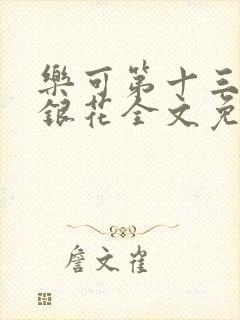 樂可第十三
銀花全文免
詹文雀